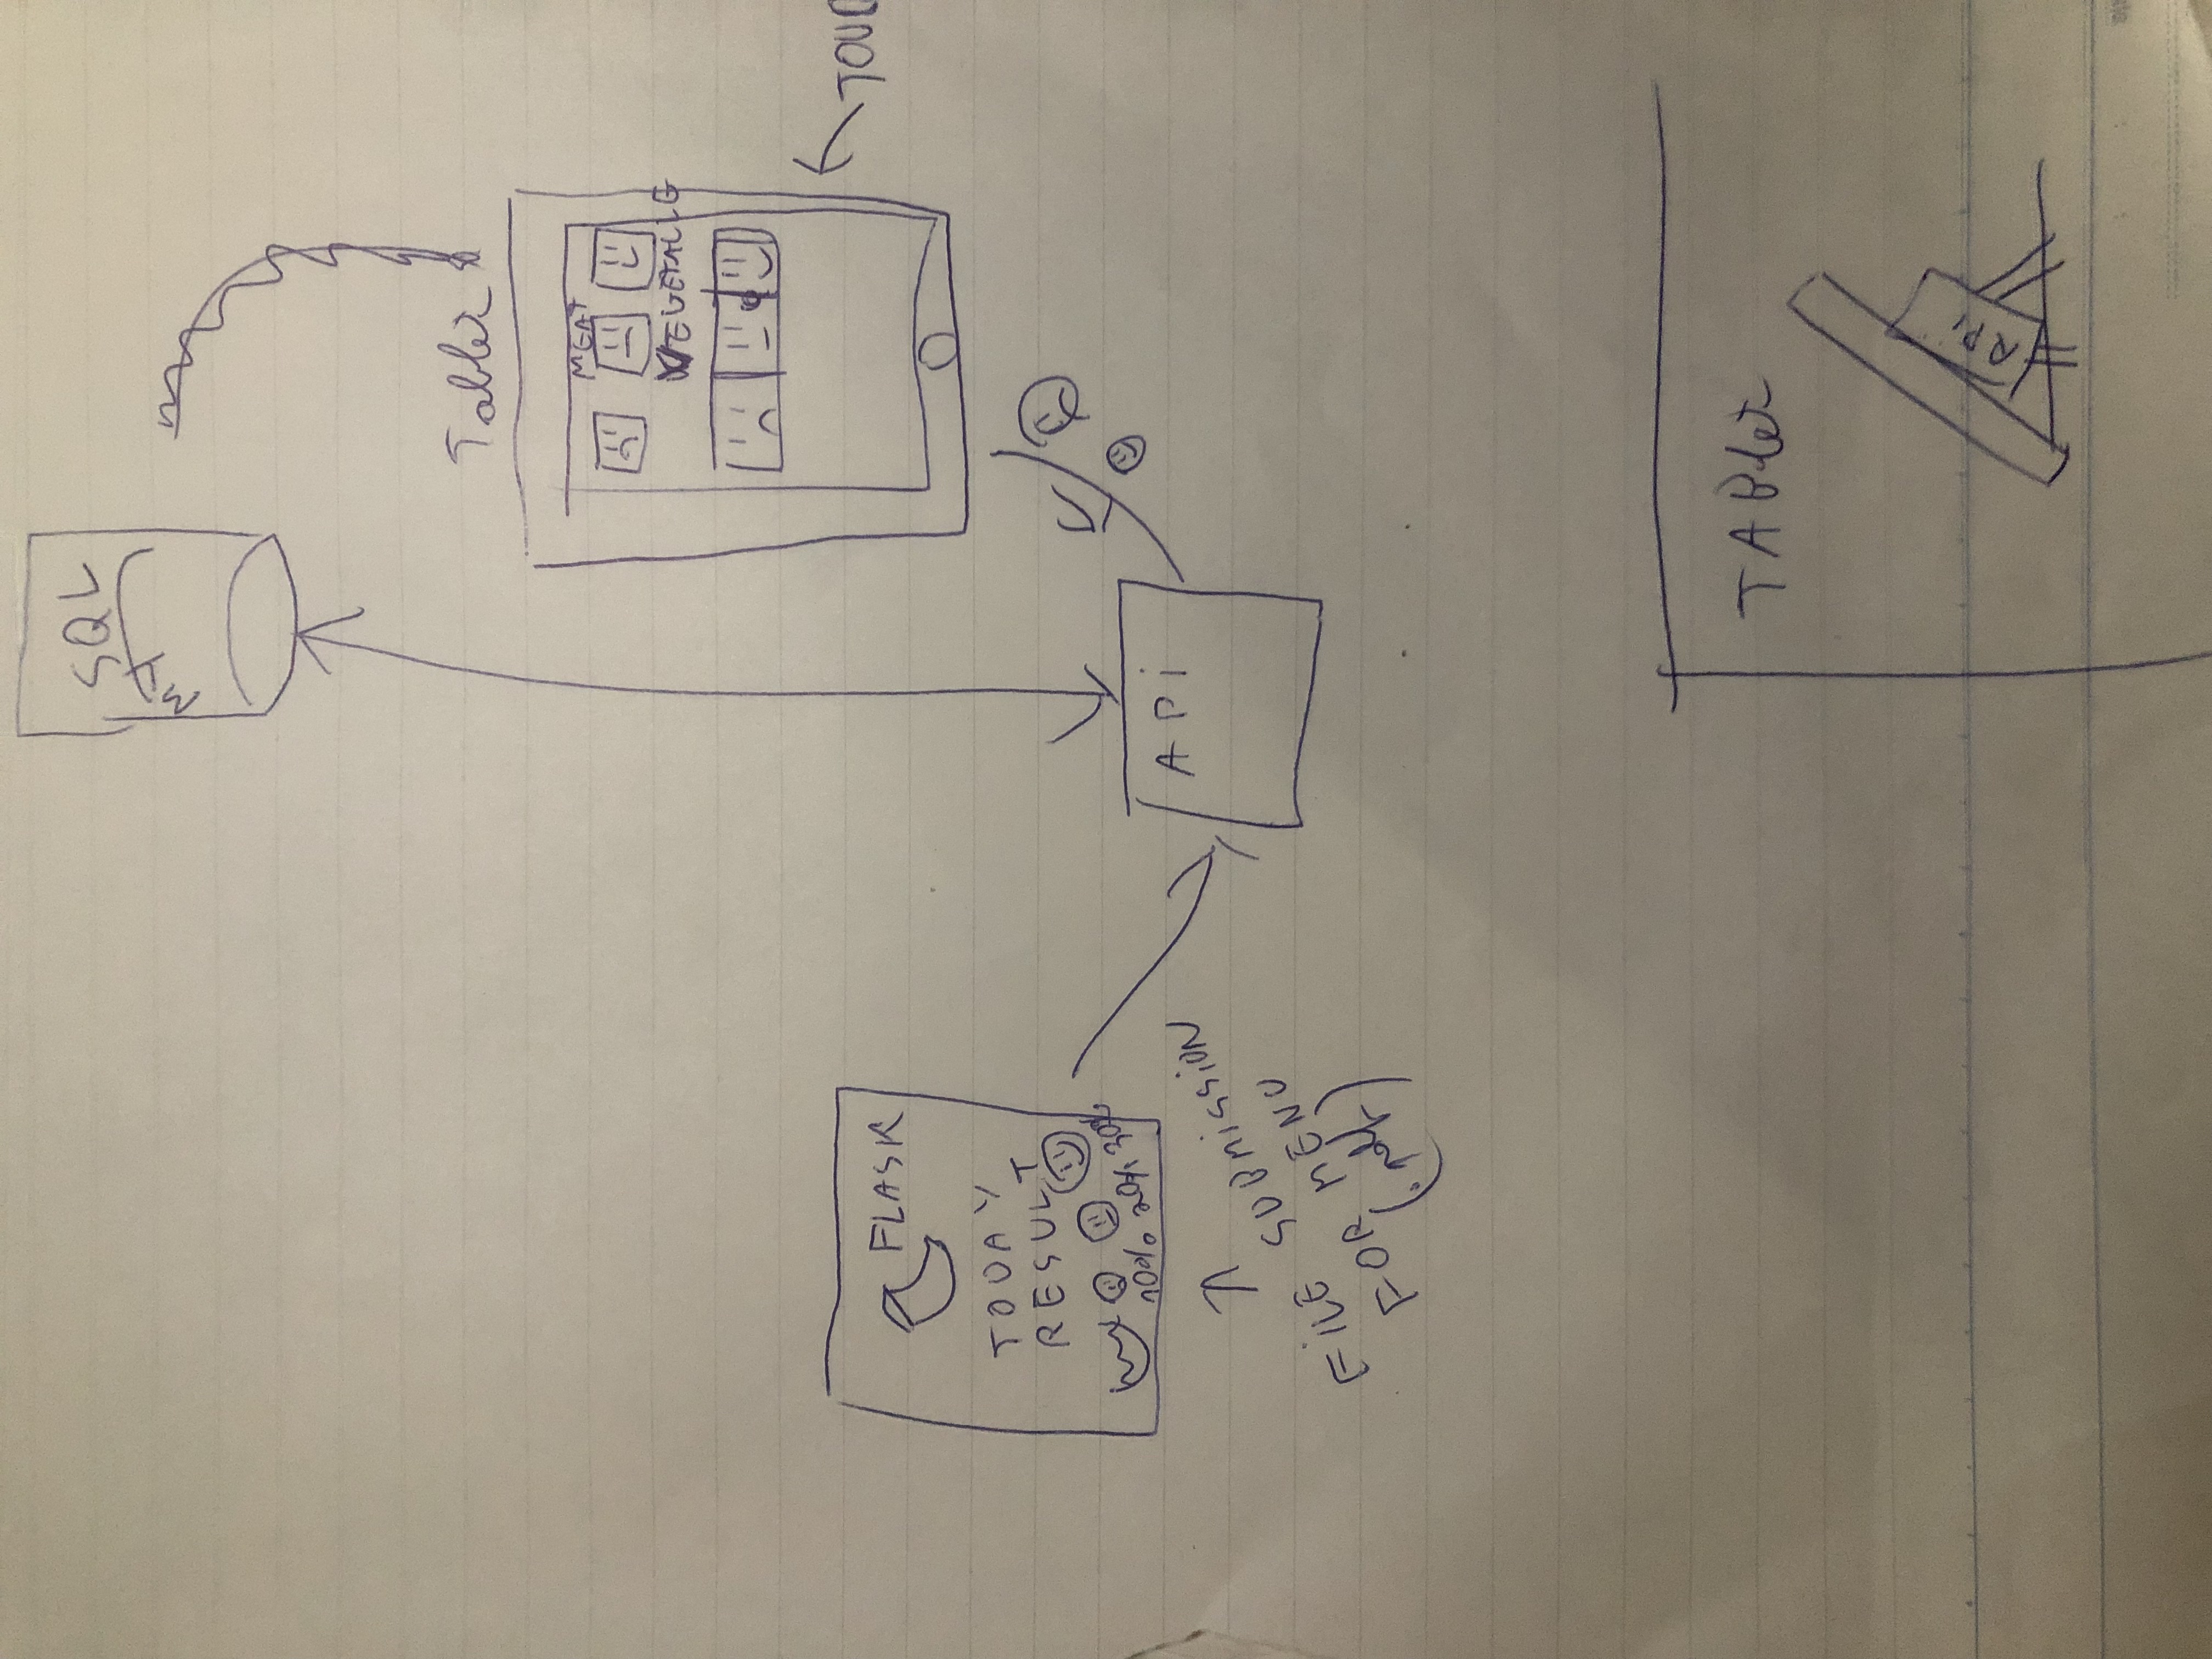 SQL
MY
Tablet
MEAT
VEGETABLE
TOUC
FLASK
TODAY
RESULT
10% 20% 30%
API
FILE SUBMISSION
FOR MENU
TABlet
RPI